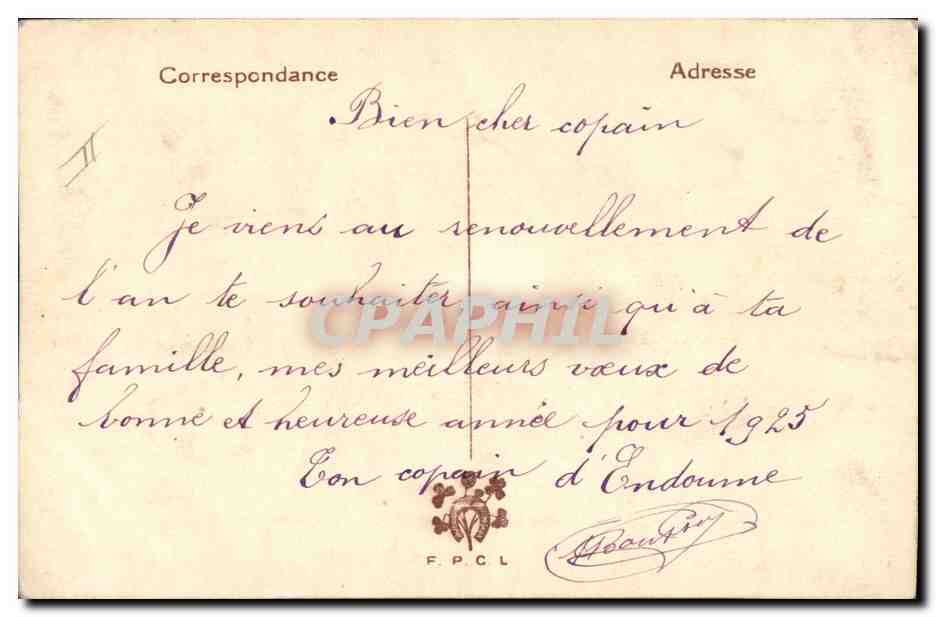 Correspondance Adresse
Bien cher copain
II
Je viens au renouvellement de
l'an te souhaiter, ainsi qu'à ta
famille, mes meilleurs vœux de
bonne et heureuse année pour 1925
Ton copain d'Endoume
CPAPHIL
F. P. C. L